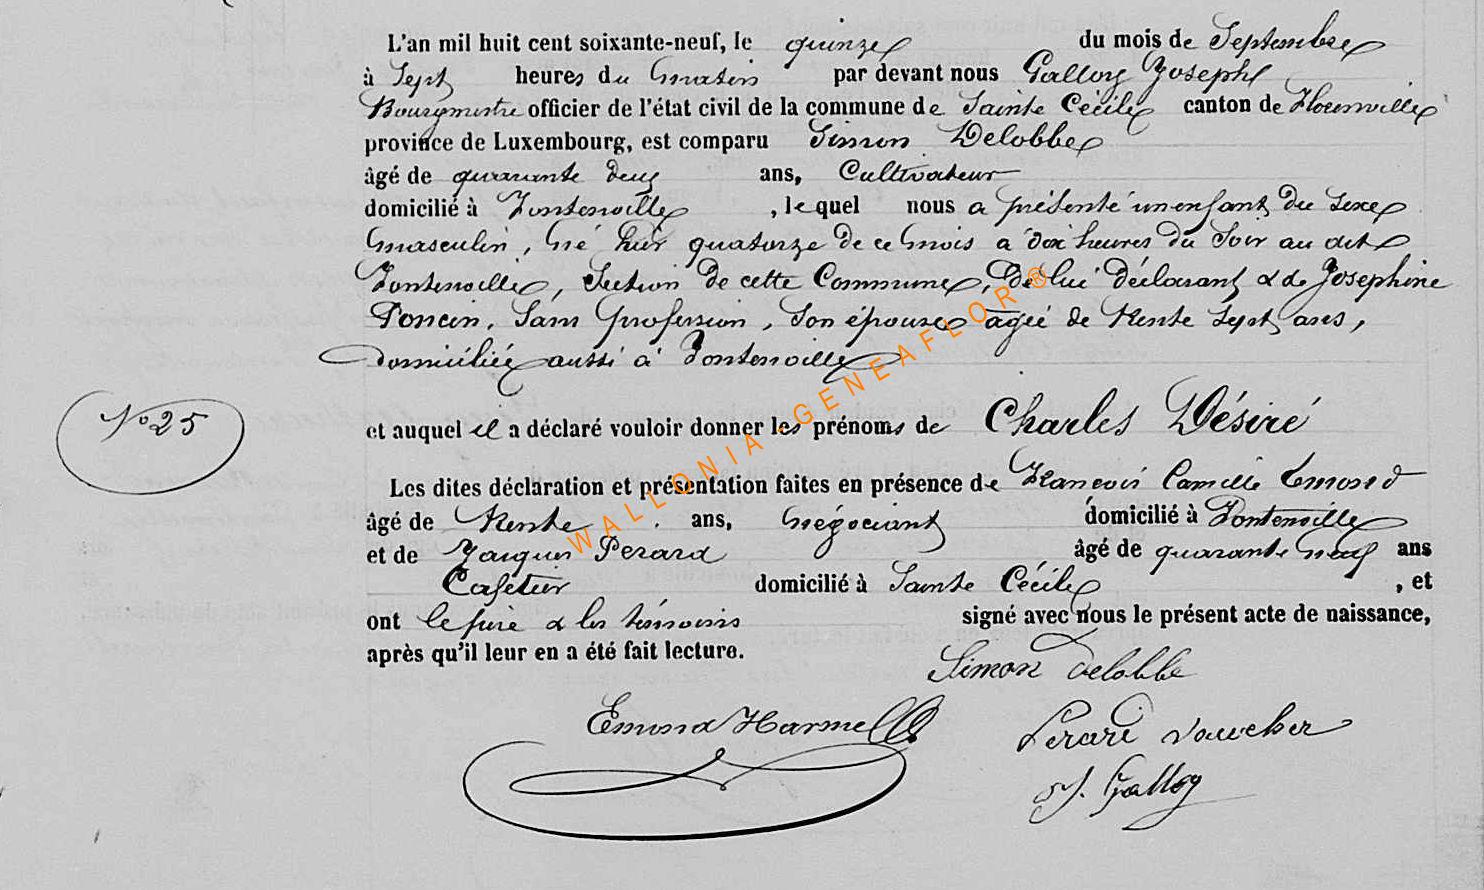 L'an mil huit cent soixante-neuf, le quinze du mois de Septembre
à Sept heures du matin par devant nous Galloy Joseph
Bourgmestre officier de l'état civil de la commune de Sainte Cécile canton de Florenville
province de Luxembourg, est comparu Simon Delobbe
âgé de quarante deux ans, Cultivateur
domicilié à Fontenoille, lequel nous a présenté un enfant du sexe
masculin, né hier quatorze de ce mois à dix heures du Soir au dit
Fontenoille, Section de cette Commune, de lui déclarant & de Josephine
Poncin, Sans profession, Son épouse agée de trente sept ans,
domiciliée aussi à Fontenoille
No 25
et auquel il a déclaré vouloir donner les prénoms de Charles Désiré
Les dites déclaration et présentation faites en présence de François Camille Emond
âgé de trente ans, négociant domicilié à Fontenoille
et de Jacques Perard âgé de quarante neuf ans
Cafetier domicilié à Sainte Cécile, et
ont le père & les témoins signé avec nous le présent acte de naissance,
après qu'il leur en a été fait lecture.
Simon Delobbe
Emond Harmel
Perard Vaucher
J. Galloy
WALLONIA-GENEAFLOR®